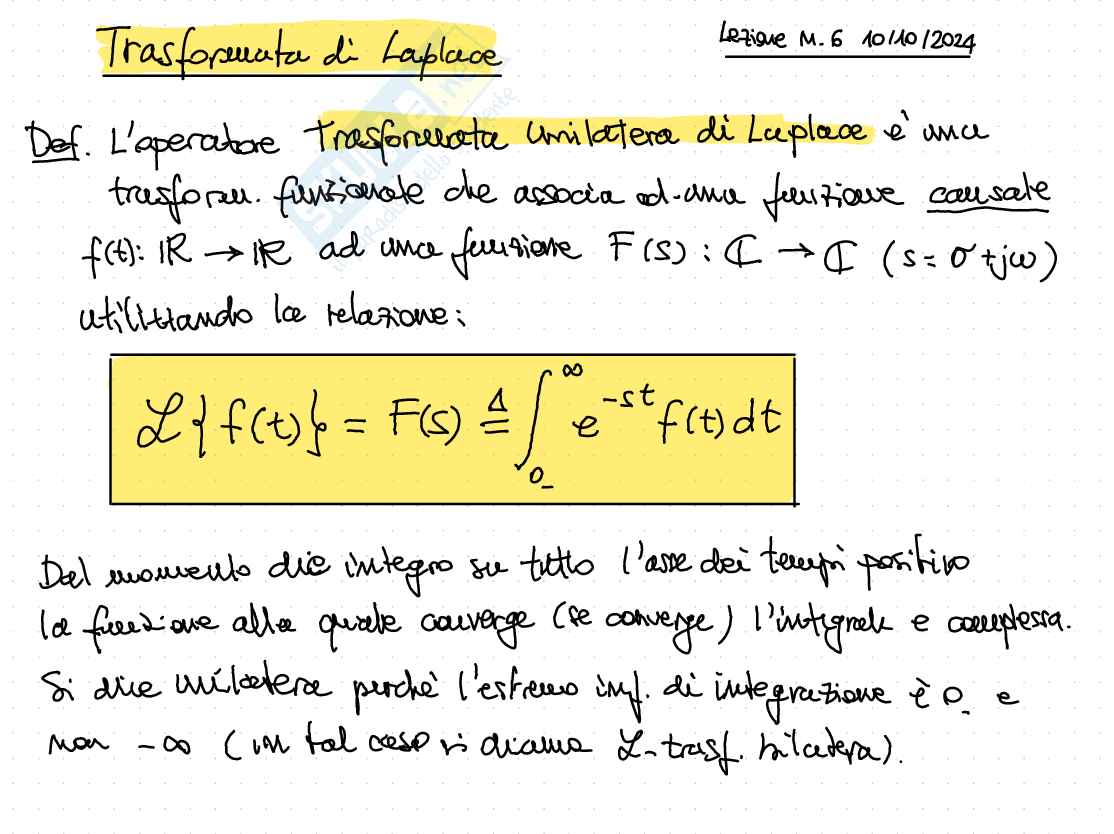 Trasformata di Laplace
Lezione N. 6 10/10/2024
Def. L'operatore Trasformata Unilatera di Laplace è una
trasform. funzionale che associa ad una funzione causale
f(t): ℝ → ℝ ad una funzione F(s): ℂ → ℂ (s = σ + jω)
utilizzando la relazione:
ℒ{f(t)} = F(s) ≜ ∫₀₋^∞ e^{-st} f(t) dt
Dal momento che integro su tutto l'asse dei tempi positivo
la funzione alla quale converge (se converge) l'integrale e complessa.
Si dice unilatera perchè l'estremo inf. di integrazione è 0₋ e
non -∞ (in tal caso si chiama ℒ-trasf. bilatera).